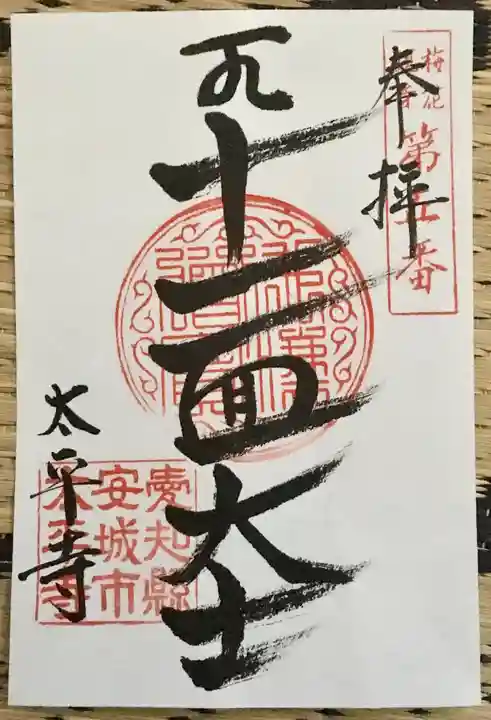 奉拝
梅花観音
第五番
十一面大士
太平寺
愛知縣
安城市
太平寺